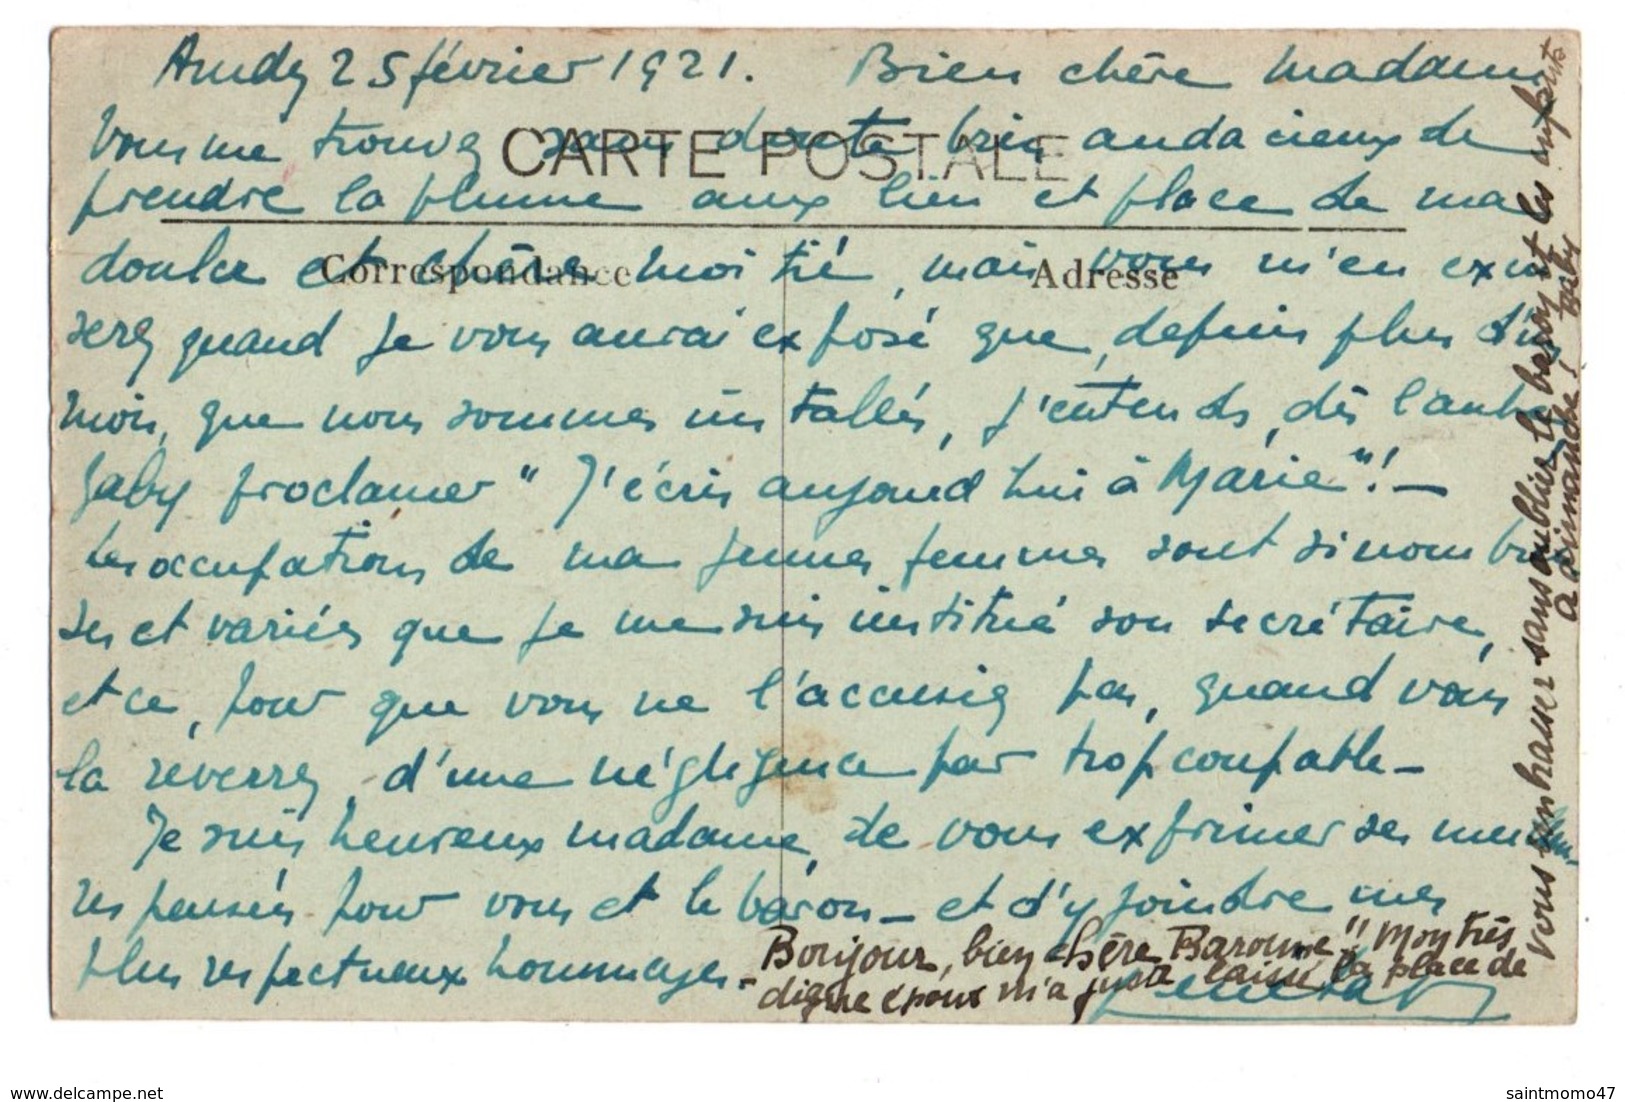 25 février 1921. Bien chère madame
Vous me trouvez sans doute bien audacieux de
CARTE POSTALE
prendre la plume aux lieu et place de ma
douce et chère moitié, mais vous m'en excu
Correspondance Adresse
serez quand je vous aurai exposé que, depuis plus d'un
mois, que nous sommes installés, j'entends, dès l'aube
Gaby proclamer "J'écris aujourd'hui à Marie"! -
Les occupations de ma jeune femme sont si nombreu
ses et variées que je me suis institué son secrétaire,
et ce, pour que vous ne l'accusiez pas, quand vous
la reverrez, d'une négligence par trop coupable -
Je suis heureux madame, de vous exprimer ses meilleu-
res pensées pour vous et le baron - et d'y joindre mes
plus respectueux hommages -
Bonjour, bien chère Baronne" Mon très
digne époux m'a juste laissé la place de
vous embrasser sans oublier le baron et les enfants
à dimanche! Gaby
saintmomo47
delcampe.net